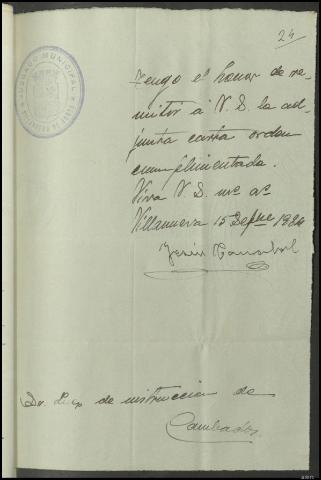 24
JUZGADO MUNICIPAL
Tengo el honor de re-
mitir á V. S. la ad-
junta carta orden
cumplimentada.
Viva V. S. ms. as.
Villanueva 15 Sepbre 1924
Sr. Juez de instruccion de
Cambados.